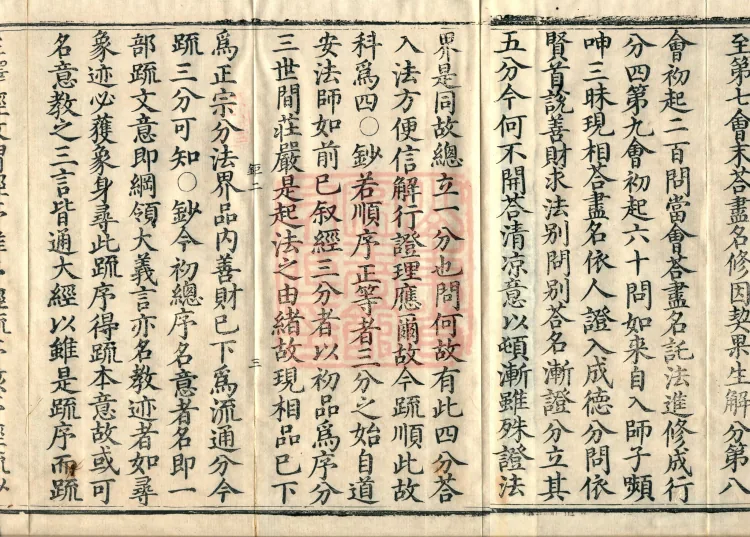 至第七會末荅盡名修因契果生解分第八
會初起二百問當會荅盡名託法進修成行
分四第九會初起六十問如来自入師子嚬
呻三昧現相荅盡名依人證入成德分問依
賢首說善財求法別問別荅名漸證分立其
五分今何不開荅清凉意以頓漸雖殊證法
界是同故總立一分也問何故有此四分荅
入法方便信解行證理應爾故今疏順此故
科爲四○鈔若順序正等者三分之始自道
安法師如前已叙經三分者以初品爲序分
三世間莊嚴是起法之由緒故現相品已下
鉅二
三
爲正宗分法界品內善財已下爲流通分今
疏三分可知○鈔今初總序名意者名即一
部疏文意即綱領大義言亦名教迹者如尋
象迹必獲象身尋此疏序得疏本意故或可
名意教之三言皆通大經以雖是疏序而疏